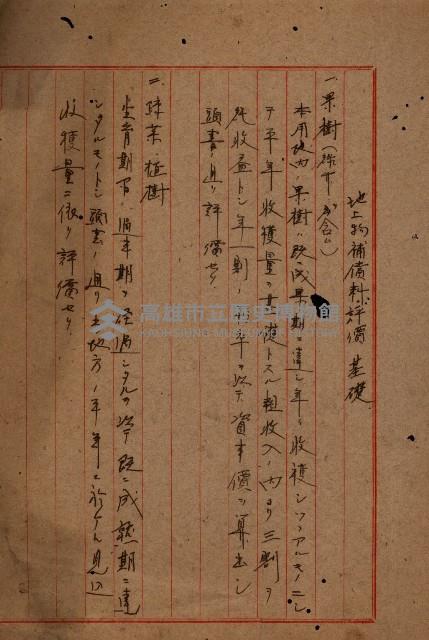 地上物補償料評價基礎
一、果樹(除下ヲ含ム)
本用地内ノ果樹ハ既ニ成果期ニ達シ年々收穫シツヽアルモノニシ
テ平年收穫量ヲ基礎トスル粗收入ノ内ヨリ三割ヲ
純收益トシ年一割ノ利率ヲ以テ資本價ヲ算出シ
頭書ノ通リ評價セリ
二、蔬菜、植樹
生育期
期ヲ経過シタルヲ以テ既ニ成熟期ニ達
シタルモノトシ頭書ノ通リ土地方ノ平年ニ於ケル見込
收穫量ニ依リ評價セリ
高雄市立歷史博物館
KAOHSIUNG MUSEUM OF HISTORY